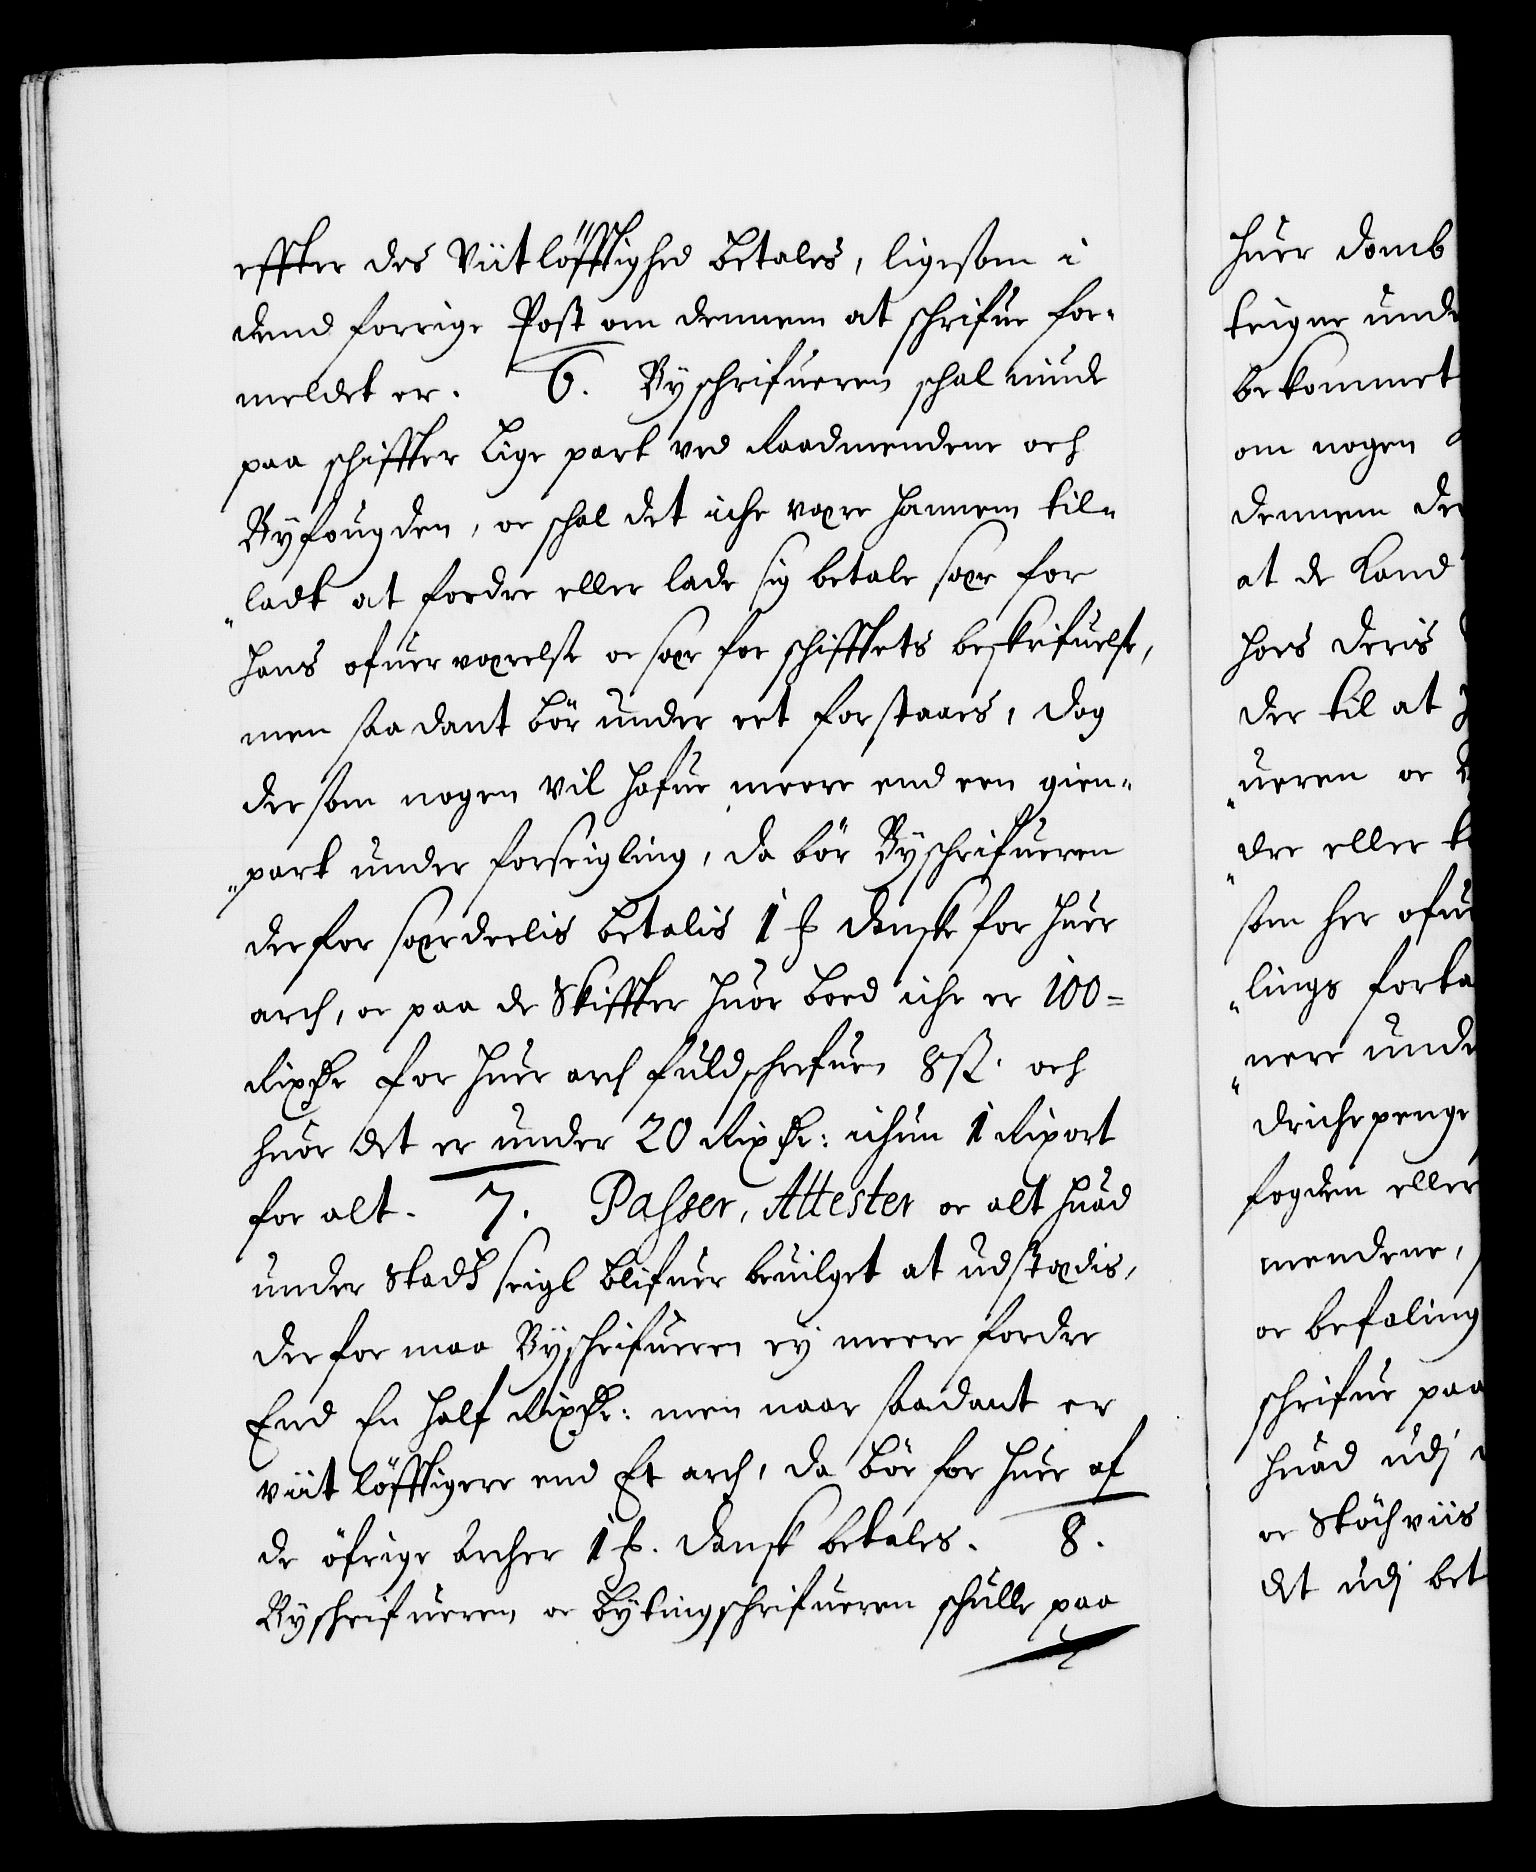 effter des Viitløfftighed betales, ligesom i
dend forrige Post om dennem at schrifue for-
meldet er. 6. Byschrifueren schal niude
paa schiffter Lige part ved Raadmendene och
Byfougden, oc schal det iche være hannem til-
"ladt at fordre eller lade sig betale sær for
hans ofuerværelse oc sær for schifftets beskrifuelse,
men saadant bör under eet forstaaes, dog
dersom nogen vil hafue meere end een gien-
"part under forseigling, da bör Byschrifueren
derfor særdeelis betalis 1 ƒ danske for huer
arch, oc paa de Skiffter huor boed iche er 100=
Rixdr for huer arch fuldschrefuen 8 ß. och
huor det er under 20 Rixdr: ichun 1 Rixort
for alt. 7. Passer, Attester oc alt huad
under Stads seigl blifuer beuilget at udstædis,
derfor maa Byschrifueren ey meere fordre
End En half Rixdr: men naar saadant er
viitløfftigere end Et arch, da bör for huer af
de öfrige Archer 1 ƒ. dansk betales. 8.
Byschrifueren oc bytingschrifueren schulle paa
huer domb
teigne unde
bekommet
om nogen
dennem de
at de Land
hoes deris
der til at
"ueren oc
"dre eller
som her ofu
"lings forta
"nere unde
drichepenge
fogden eller
mendene,
oc befaling
schrifue paa
huad udj
oc Stöchviis
det udj bet